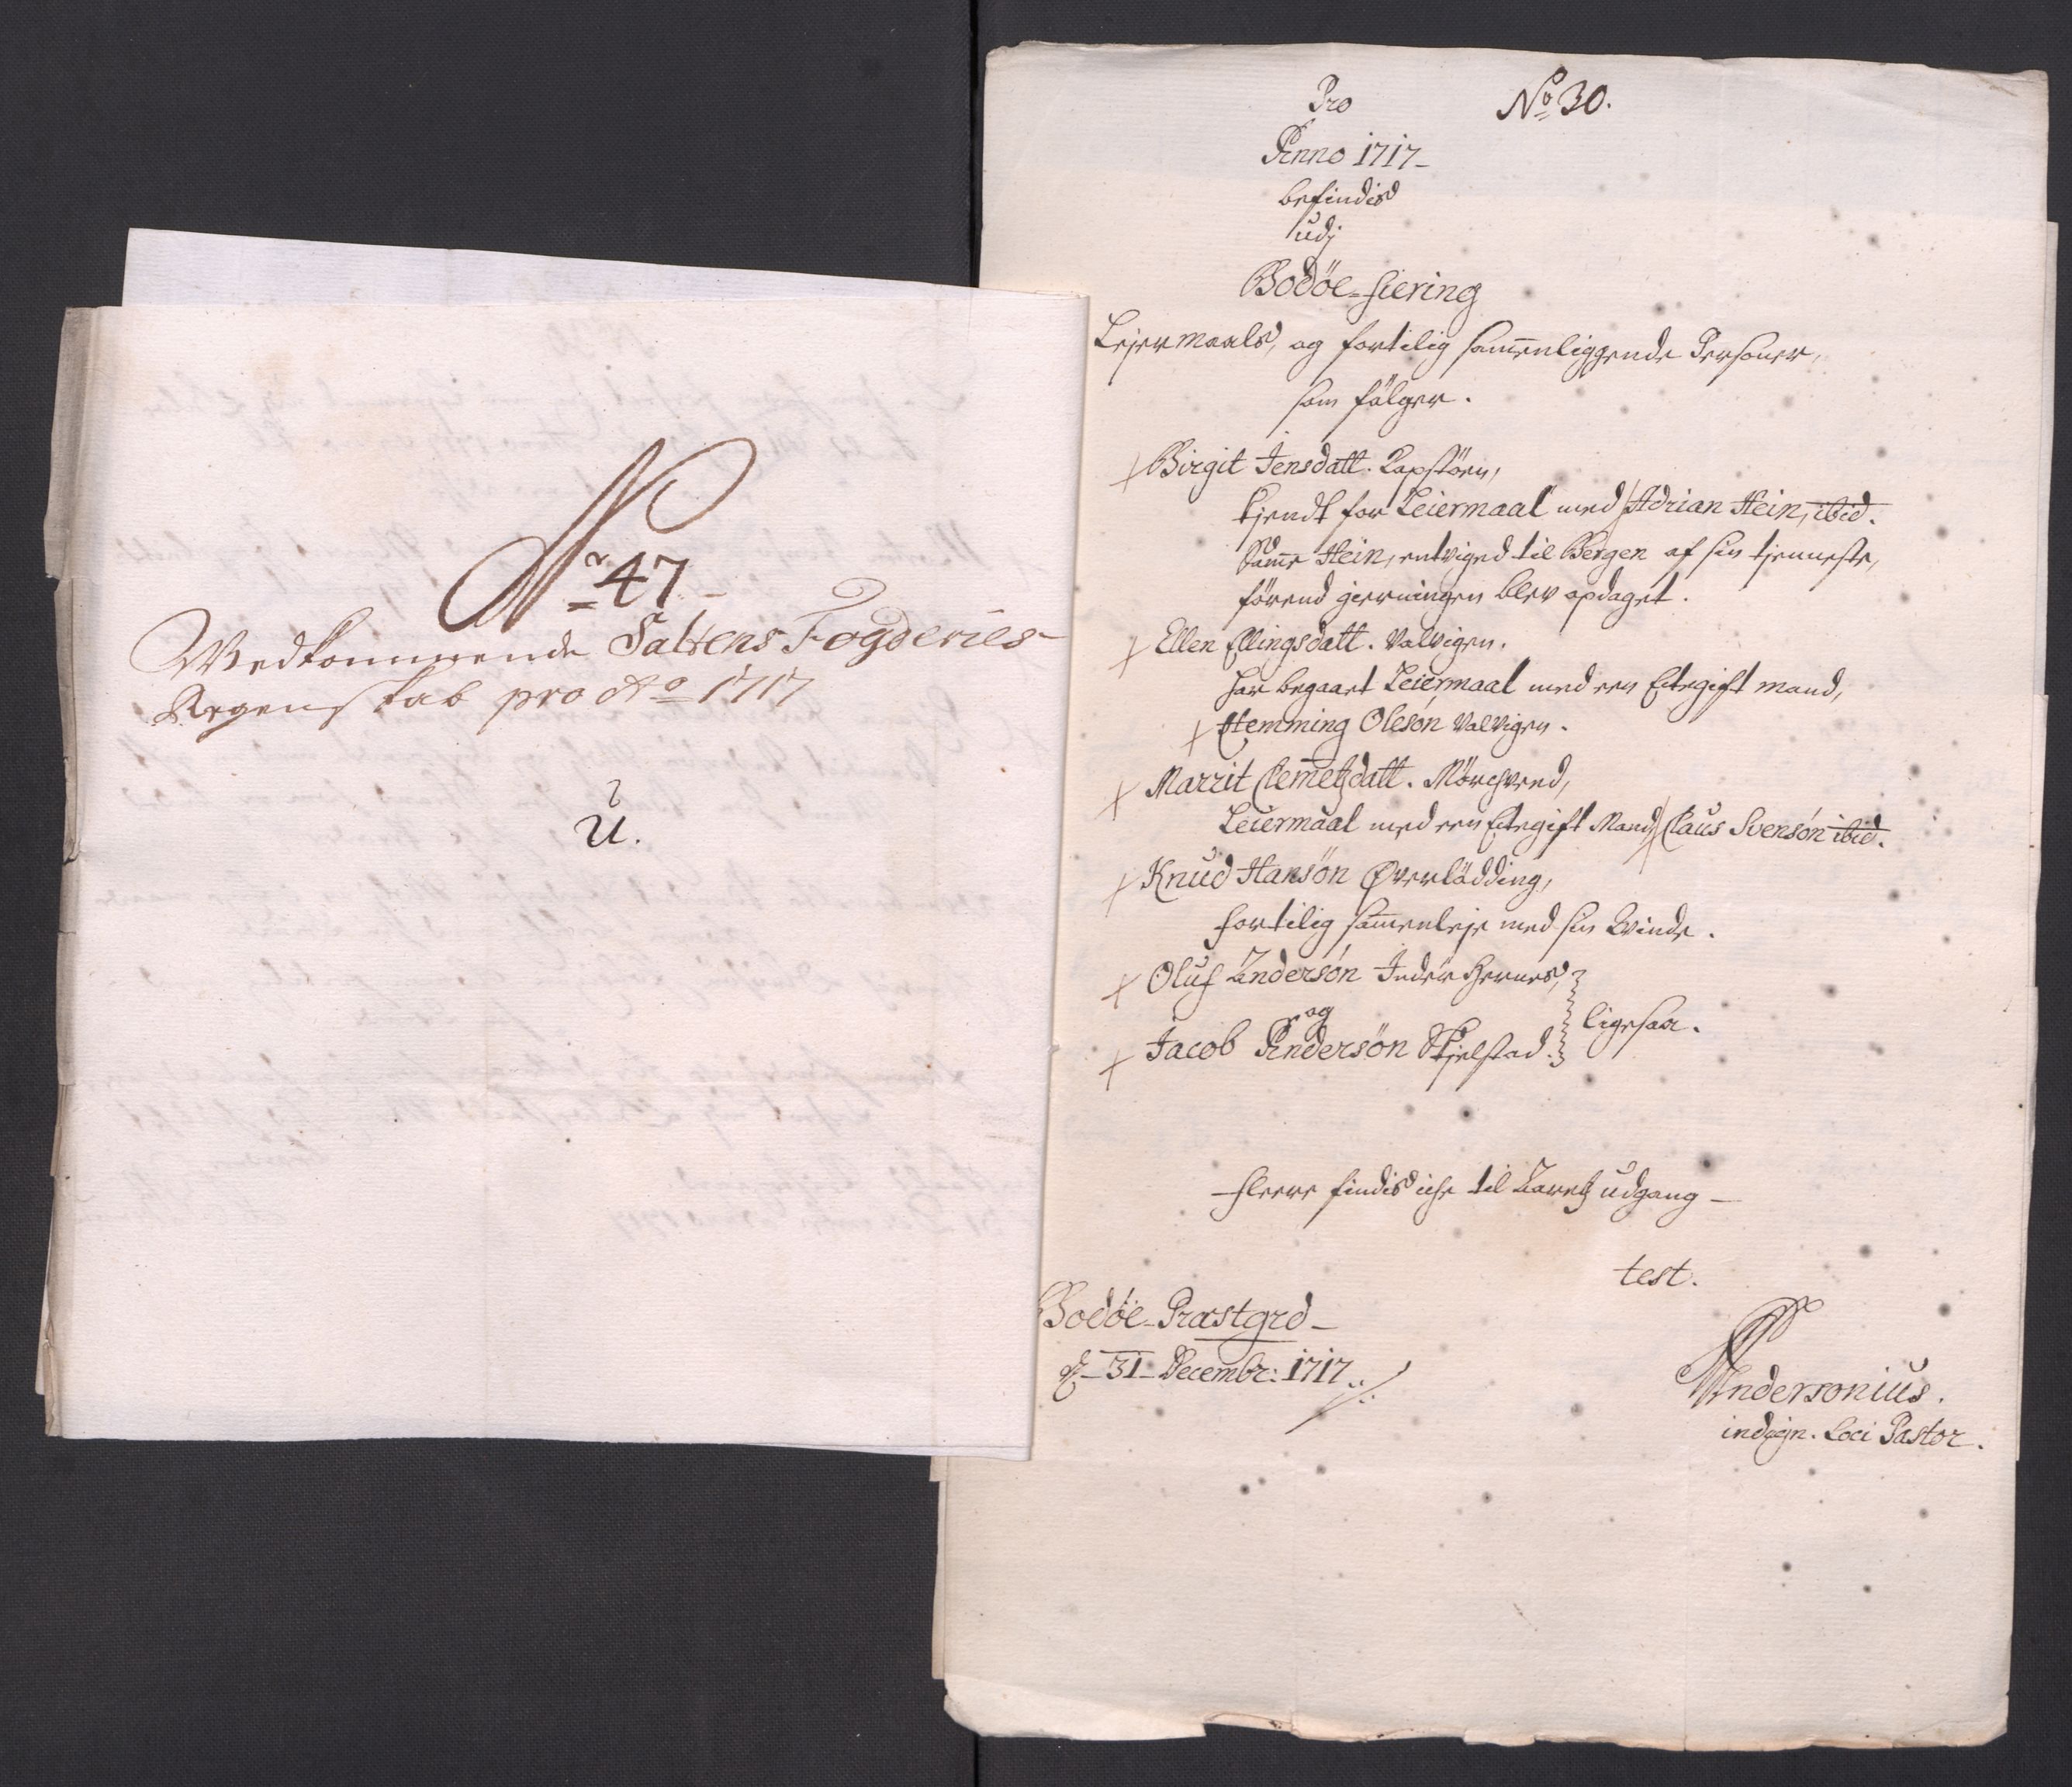 Nr 47
Vedkommende Saltens Fogderies
Regenskab pro Ao 1717
U.
Pro
No 30.
Anno 1717
befindis
udj
Bodöe-fiering
Lejermaals, og fortilig sammenliggende Personer,
som fölger.
Birgit Jensdatt. Lopstöen,
kjendt for Leiermaal med Adrian Hein, ibid.
Samme Hein, entviged til Bergen af sin tjenneste,
förend gierningen blev opdaget.
Ellen Ellingsdatt. Valvigen.
har begaaet Leiermaal med een Ectegift mand,
Hemming Olesön Valvigen.
Marrit Clemetzdatt. Mörchved,
Leiermaal med een Ectegift Mand Claus Svensön ibid.
Knud Hansön Øverlödding,
fortilig sammenleje med sin Qvinde.
Oluf Andersön Inder Hernes,
og
Jacob Andersön Skjelstad.
ligesaa.
fleere findis iche til Aaretz udgang
test.
Bodöe-Præstgrd
d. 31 Decembr: 1717
Andersonius.
indign. Loci Pastor.